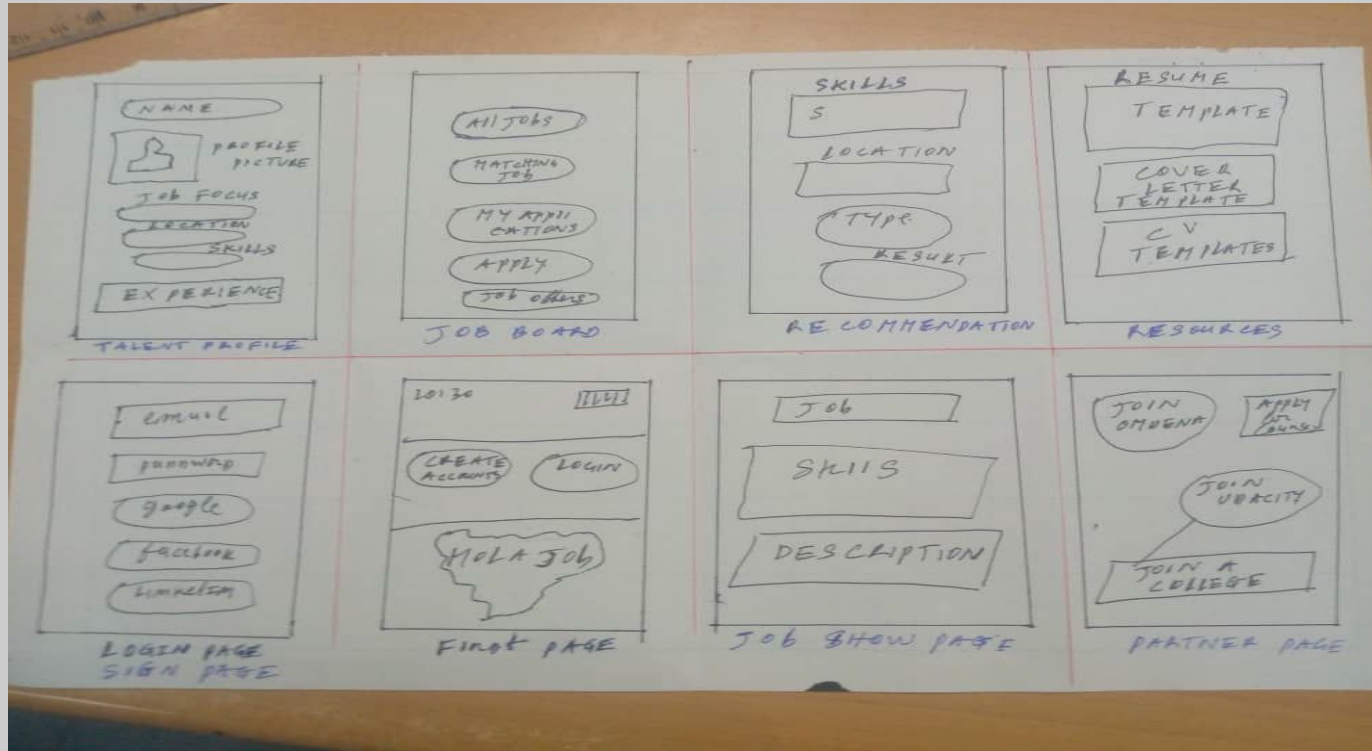 NAME
PROFILE
PICTURE
JOB FOCUS
LOCATION
SKILLS
EXPERIENCE
TALENT PROFILE
All JObs
MATCHING
JOB
MY APPLI
CATIONS
APPLY
JOb offers
JOB BOARD
SKILLS
S
LOCATION
TYPE
RESULT
RECOMMENDATION
RESUME
TEMPLATE
COVER
LETTER
TEMPLATE
CV
TEMPLATES
RESOURCES
email
password
google
facebook
LOGIN PAGE
SIGN PAGE
20:30
CREATE
ACCOUNTS
LOGIN
HOLA JOb
First PAGE
JOb
SKIIS
DESCRIPTION
JOB SHOW PAGE
JOIN
OMDENA
APPLY
JOIN
UDACITY
JOIN A
COLLEGE
PARTNER PAGE